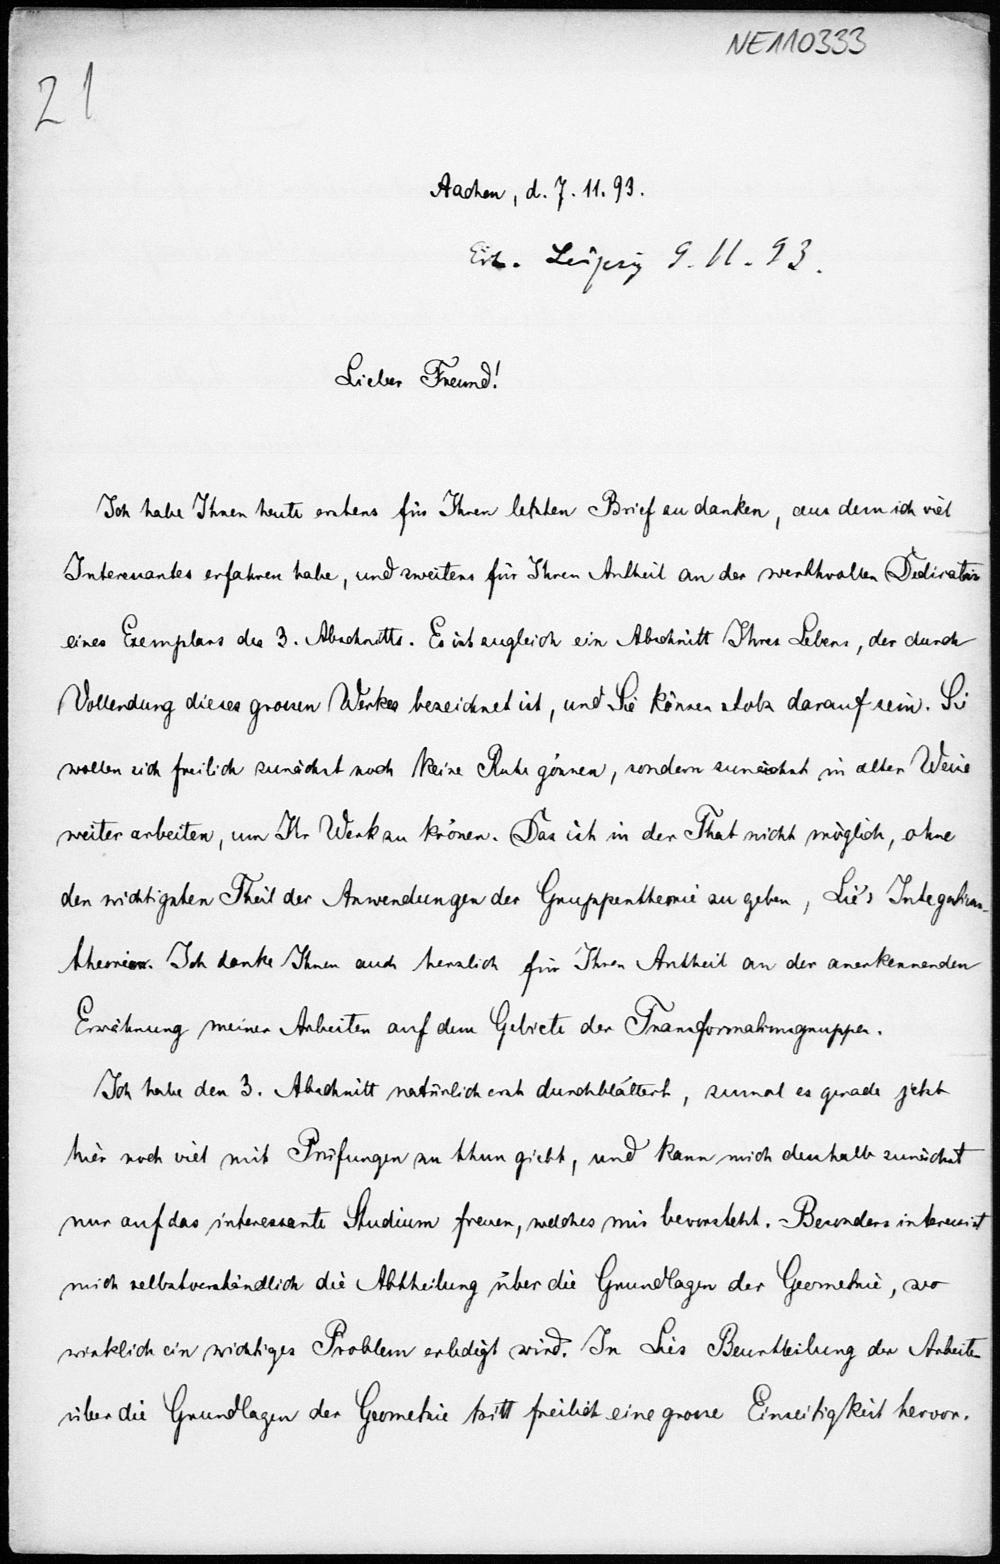 NE110333
21
Aachen, d. 7. 11. 93.
Erh. Leipzig 9. 11. 93.
Lieber Freund!
Ich habe Ihnen heute erstens für Ihren letzten Brief zu danken, aus dem ich viel
Interessantes erfahren habe, und zweitens für Ihren Antheil an der werthvollen Dedication
eines Exemplars des 3. Abschnitts. Es ist zugleich ein Abschnitt Ihres Lebens, der durch
Vollendung dieses grossen Werkes bezeichnet ist, und Sie können stolz darauf sein. Sie
wollen sich freilich zunächst noch keine Ruhe gönnen, sondern zunächst in alter Weise
weiter arbeiten, um Ihr Werk zu krönen. Das ist in der That nicht möglich, ohne
den wichtigsten Theil der Anwendungen der Gruppentheorie zu geben, Lie's Integrations-
theorien. Ich danke Ihnen auch herzlich für Ihren Antheil an der anerkennenden
Erwähnung meiner Arbeiten auf dem Gebiete der Transformationsgruppen.
Ich habe den 3. Abschnitt natürlich erst durchblättert, zumal es gerade jetzt
hier noch viel mit Prüfungen zu thun giebt, und kann mich deshalb zunächst
nur auf das interessante Studium freuen, welches mir bevorsteht. Besonders interessirt
mich selbstverständlich die Abtheilung über die Grundlagen der Geometrie, wo
wirklich ein wichtiges Problem erledigt wird. In Lies Beurtheilung der Arbeiten
über die Grundlagen der Geometrie tritt freilich eine grosse Einseitigkeit hervor.